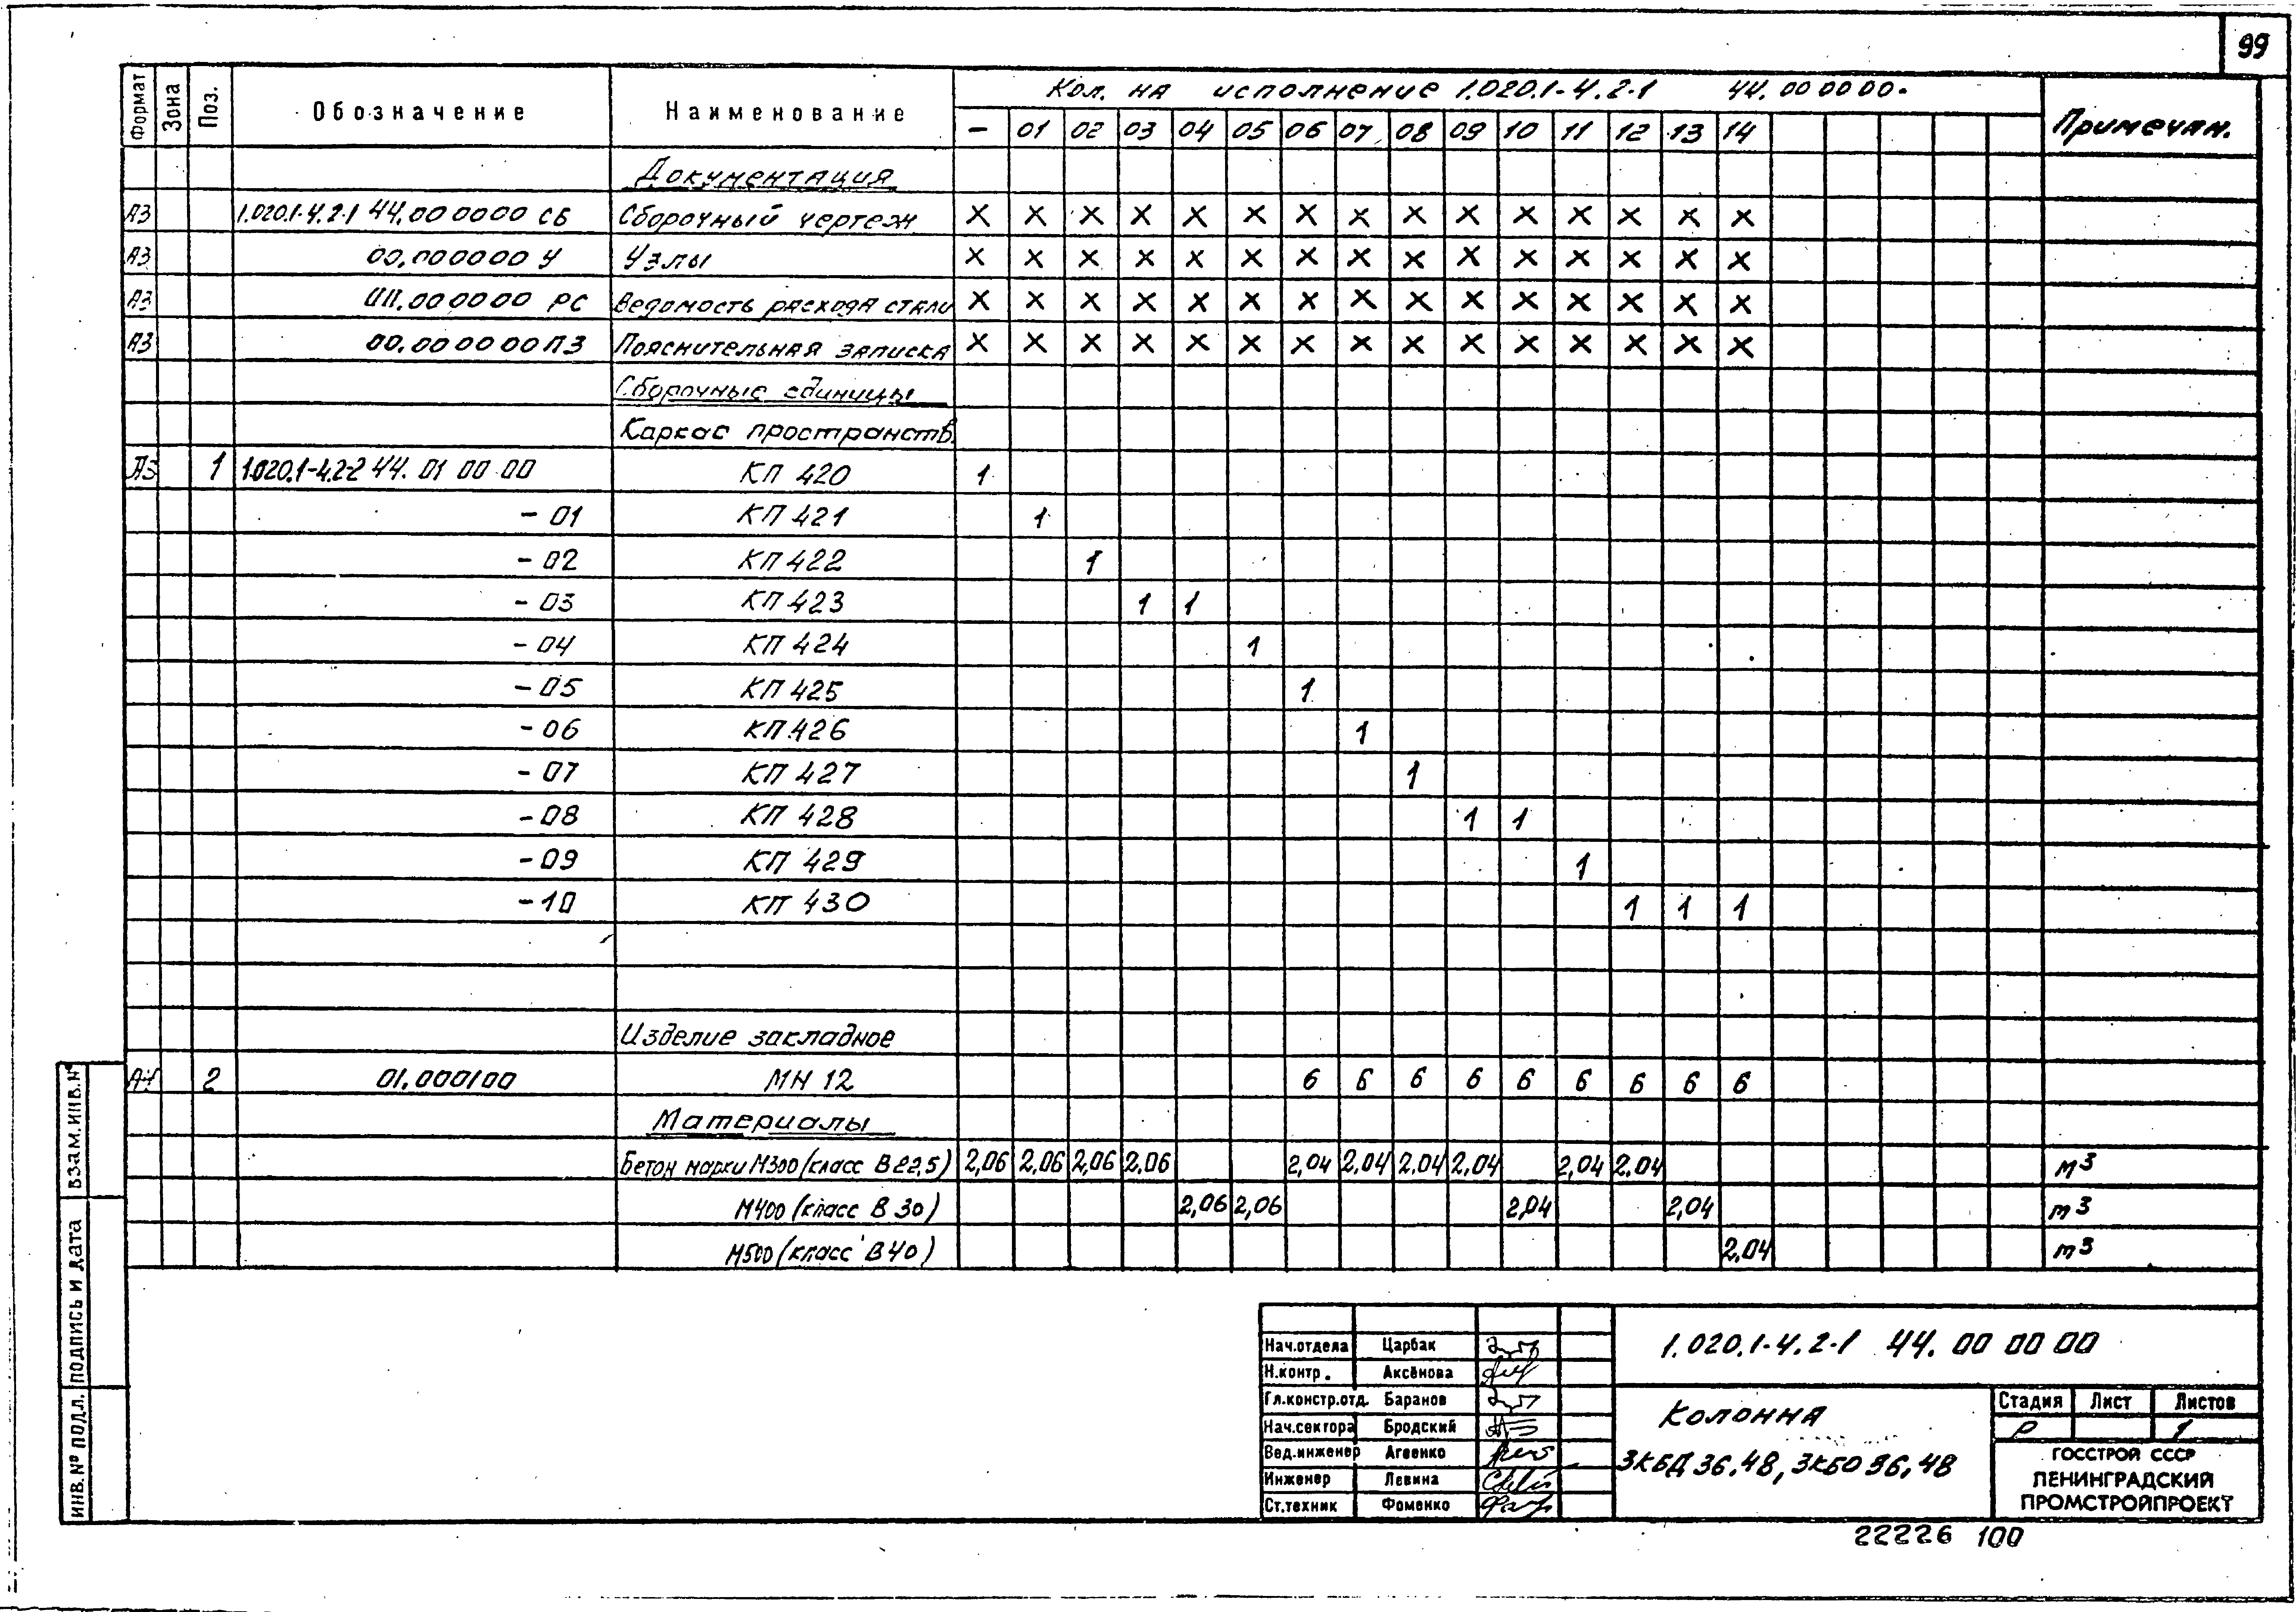 99
Формат Зона Поз. Обозначение Наименование Кол. на исполнение 1.020.1-4.2-1 44.00 00 00- Примечан.
- 01 02 03 04 05 06 07 08 09 10 11 12 13 14
Документация
А3 1.020.1-4.2-1 44.00 00 00 СБ Сборочный чертеж X X X X X X X X X X X X X X X
А3 00.00 00 00 У Узлы X X X X X X X X X X X X X X X
А3 00.00 00 00 РС Ведомость расхода стали X X X X X X X X X X X X X X X
А3 00.00 00 00 ПЗ Пояснительная записка X X X X X X X X X X X X X X X
Сборочные единицы
Каркас пространств.
А3 1 1.020.1-4.2-2 44. 01 00 00 КП 420 1
- 01 КП 421 1
- 02 КП 422 1
- 03 КП 423 1 1
- 04 КП 424 1
- 05 КП 425 1
- 06 КП 426 1
- 07 КП 427 1
- 08 КП 428 1 1
- 09 КП 429 1
- 10 КП 430 1 1 1
Изделие закладное
А4 2 01.000100 МН 12 6 6 6 6 6 6 6 6 6
Материалы
Бетон марки М300 (класс В22,5) 2,06 2,06 2,06 2,06 2,04 2,04 2,04 2,04 2,04 2,04 м3
М400 (класс В 30) 2,06 2,06 2,04 2,04 м3
М500 (класс В40) 2,04 м3
ИНВ.№ ПОДЛ. ПОДПИСЬ И ДАТА ВЗАМ.ИНВ.№
Нач.отдела Царбак
Н.контр. Аксёнова
Гл.констр.отд. Баранов
Нач.сектора Бродский
Вед.инженер Агеенко
Инженер Левина
Ст.техник Фоменко
1.020.1-4.2-1 44. 00 00 00
Колонна
3КБД 36.48, 3КБО 36.48
Стадия Лист Листов
Р 1
ГОССТРОЙ СССР
ЛЕНИНГРАДСКИЙ
ПРОМСТРОЙПРОЕКТ
22226 100